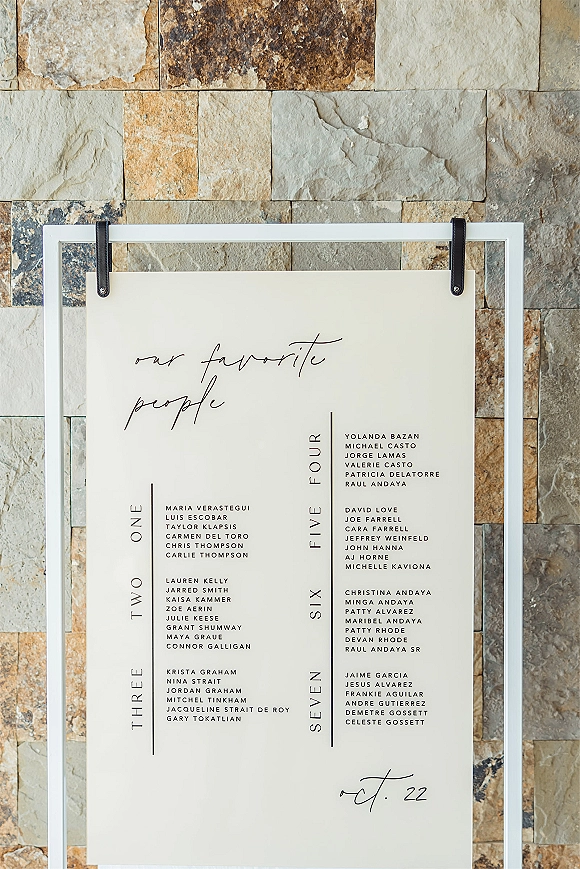 our favorite
people
ONE
MARIA VERASTEGUI
LUIS ESCOBAR
TAYLOR KLAPSIS
CARMEN DEL TORO
CHRIS THOMPSON
CARLIE THOMPSON
TWO
LAUREN KELLY
JARRED SMITH
KAISA KAMMER
ZOE AERIN
JULIE KEESE
GRANT SHUMWAY
MAYA GRAUE
CONNOR GALLIGAN
THREE
KRISTA GRAHAM
NINA STRAIT
JORDAN GRAHAM
MITCHEL TINKHAM
JACQUELINE STRAIT DE ROY
GARY TOKATLIAN
FOUR
YOLANDA BAZAN
MICHAEL CASTO
JORGE LAMAS
VALERIE CASTO
PATRICIA DELATORRE
RAUL ANDAYA
FIVE
DAVID LOVE
JOE FARRELL
CARA FARRELL
JEFFREY WEINFELD
JOHN HANNA
AJ HORNE
MICHELLE KAVIONA
SIX
CHRISTINA ANDAYA
MINGA ANDAYA
PATTY ALVAREZ
MARIBEL ANDAYA
PATTY RHODE
DEVAN RHODE
RAUL ANDAYA SR
SEVEN
JAIME GARCIA
JESUS ALVAREZ
FRANKIE AGUILAR
ANDRE GUTIERREZ
DEMETRE GOSSETT
CELESTE GOSSETT
oct. 22